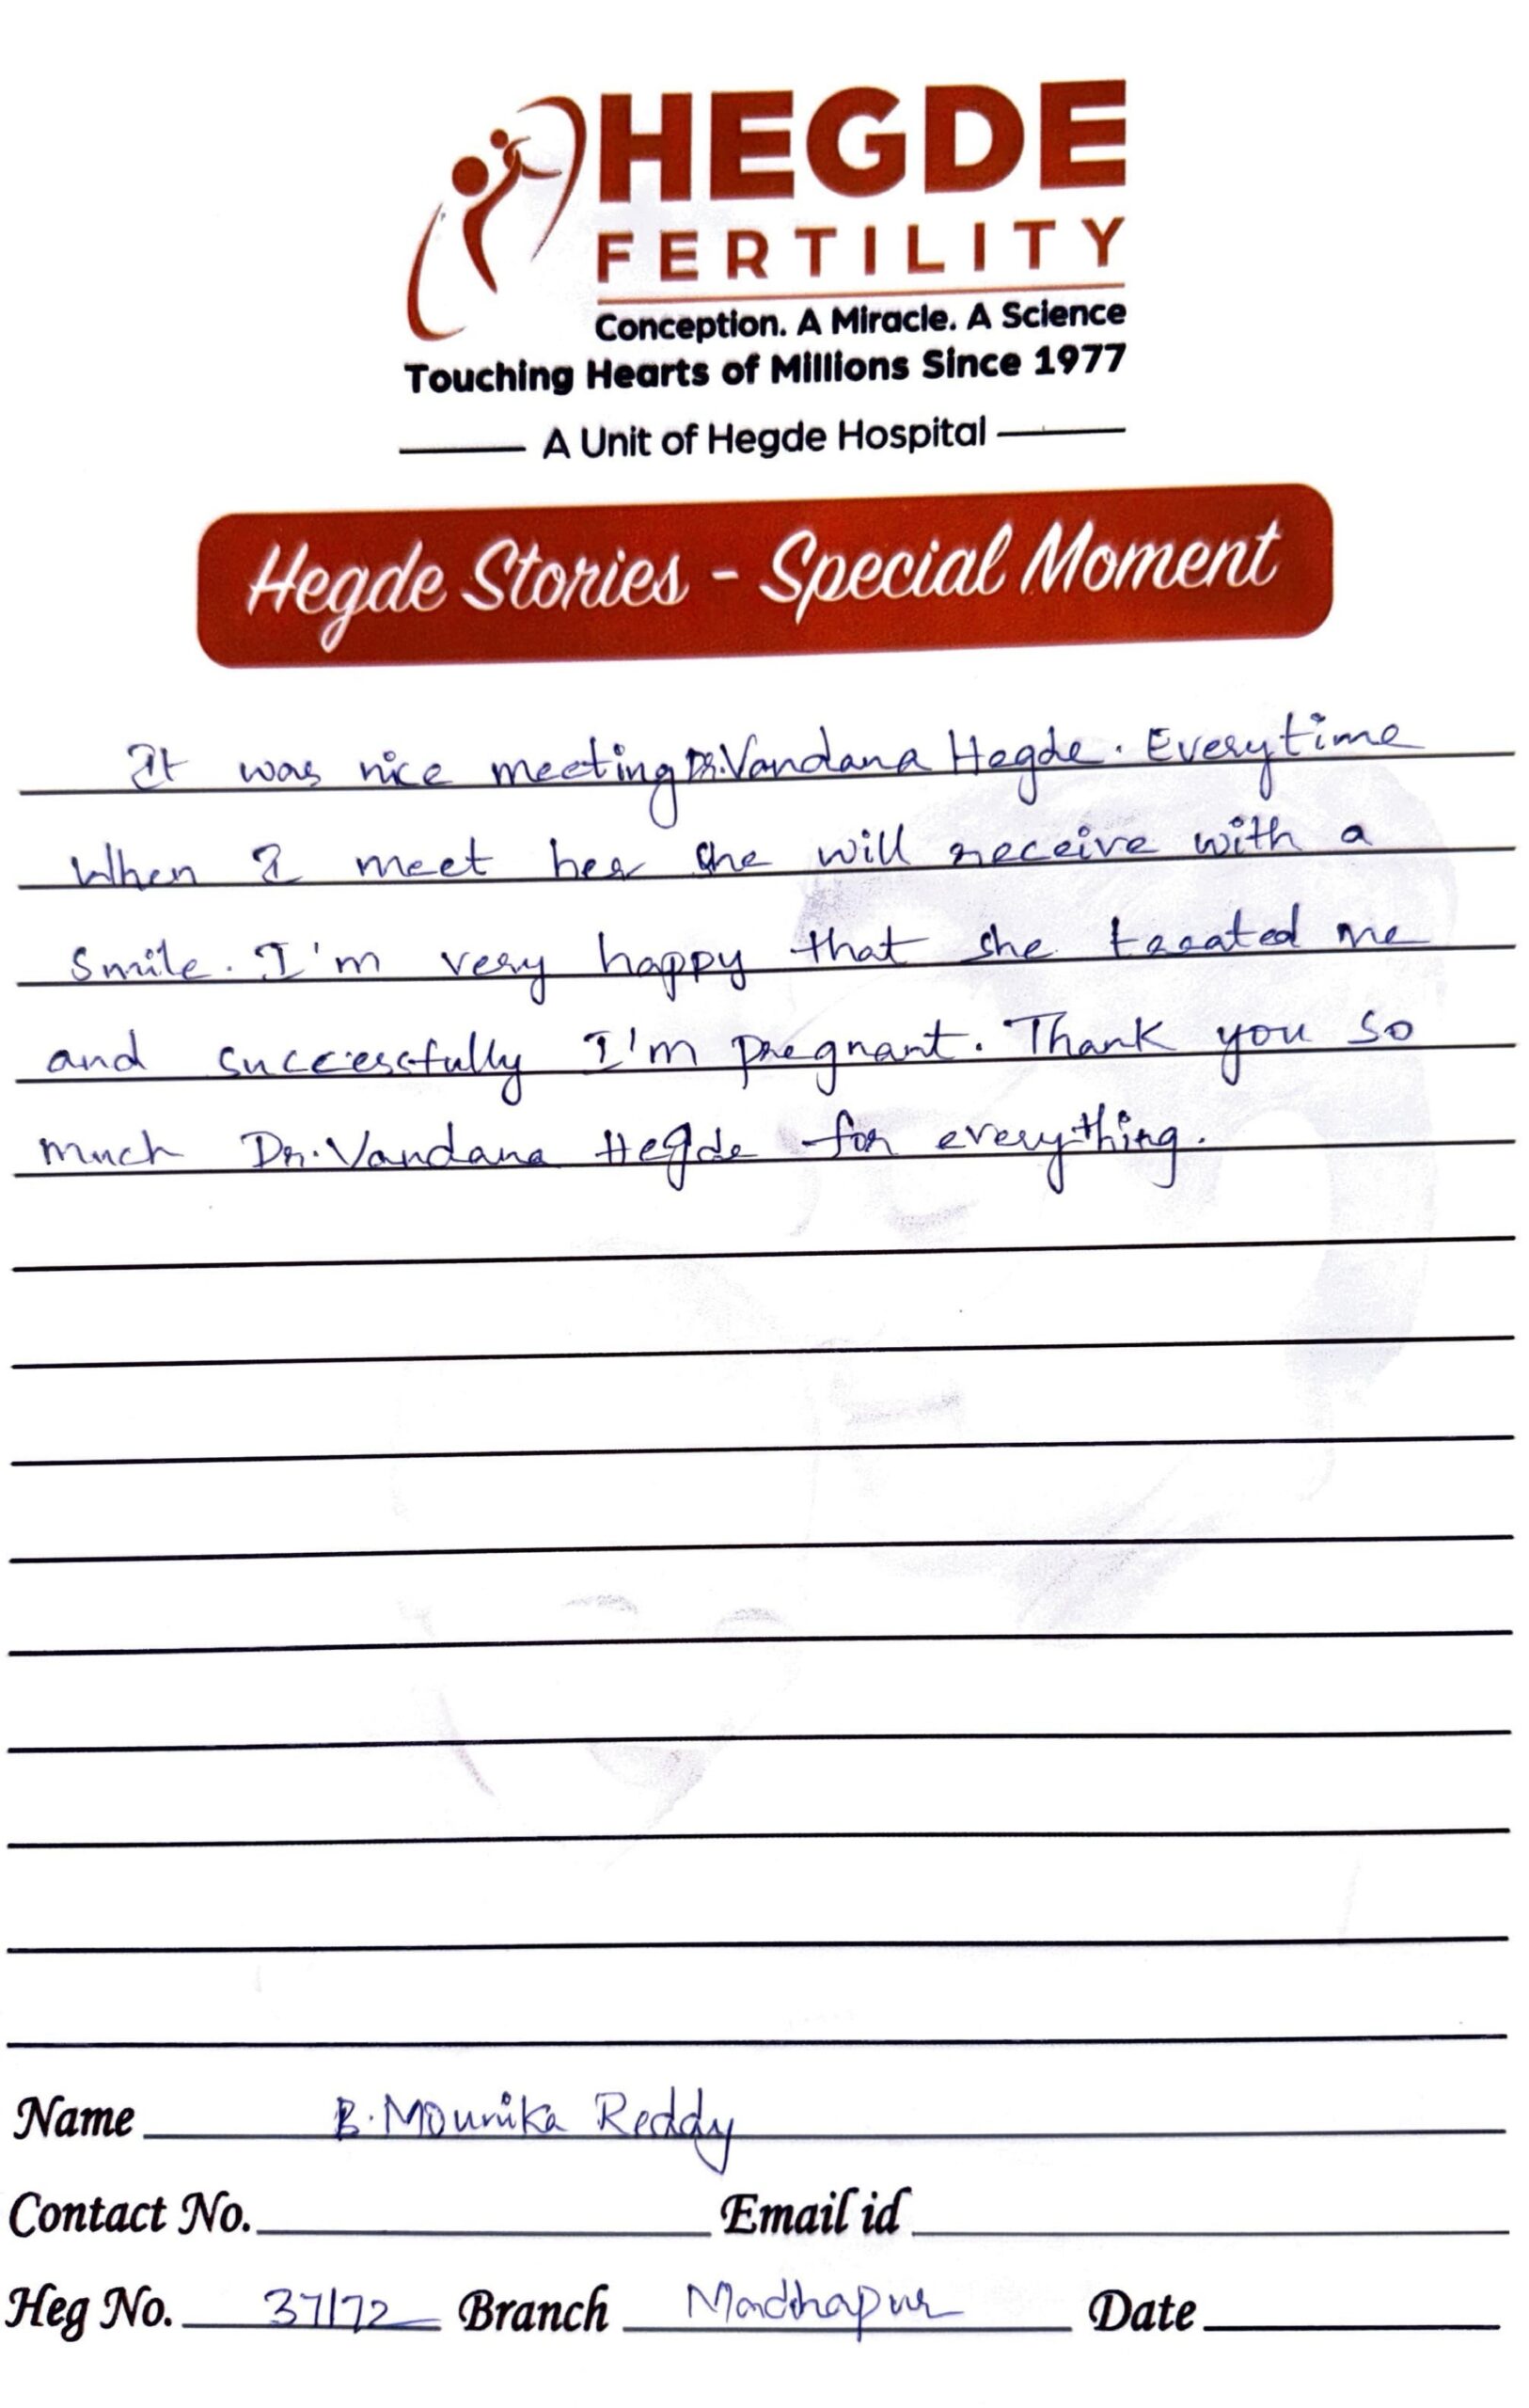 HEGDE
FERTILITY
Conception. A Miracle. A Science
Touching Hearts of Millions Since 1977
A Unit of Hegde Hospital
Hegde Stories - Special Moment
It was nice meeting Dr.Vandana Hegde. Everytime
When I meet her she will receive with a
smile. I'm very happy that she treated me
and successfully I'm pregnant. Thank you so
much Dr.Vandana Hegde for everything.
Name B.Mounika Reddy
Contact No. Email id
Heg No. 37172 Branch Madhapur Date